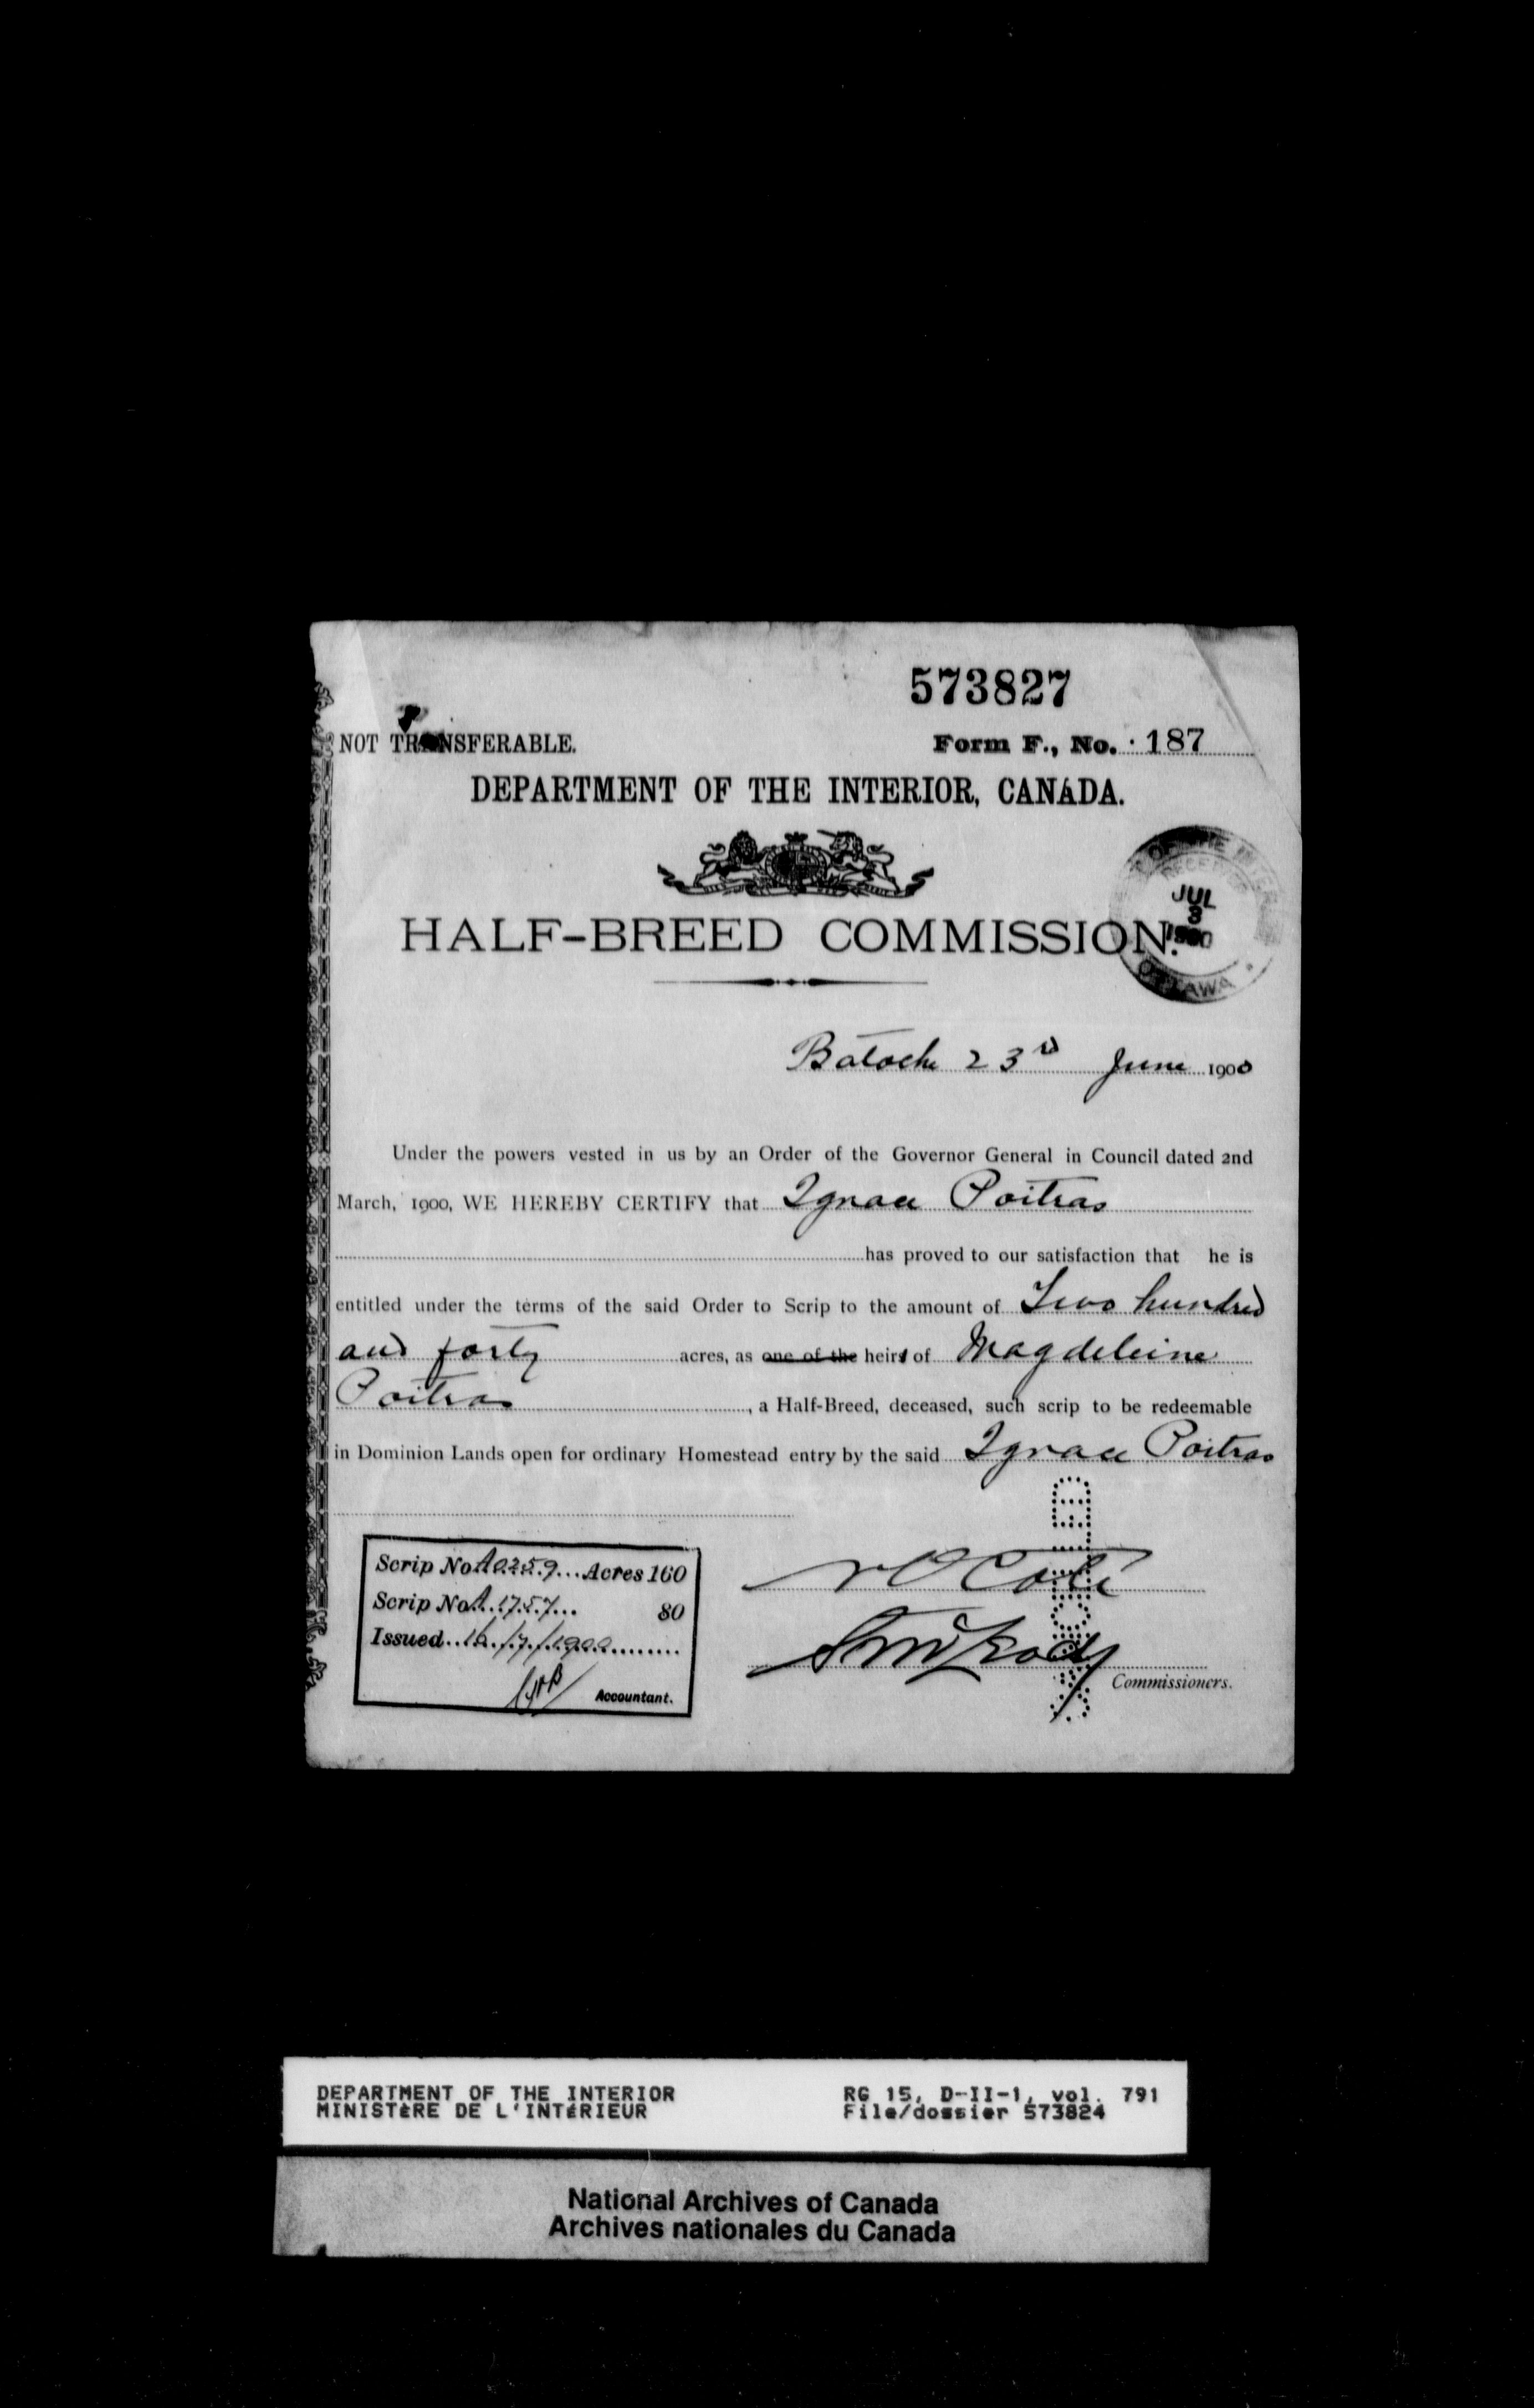 573827
NOT TRANSFERABLE.
Form F., No. 187
DEPARTMENT OF THE INTERIOR, CANADA.
HALF-BREED COMMISSION.
JUL
3
1900
OTTAWA
Batoche 23rd June 1900
Under the powers vested in us by an Order of the Governor General in Council dated 2nd
March, 1900, WE HEREBY CERTIFY that Ignace Poitras
has proved to our satisfaction that he is
entitled under the terms of the said Order to Scrip to the amount of Two hundred
and forty acres, as one of the heirs of Magdeleine
Poitras, a Half-Breed, deceased, such scrip to be redeemable
in Dominion Lands open for ordinary Homestead entry by the said Ignace Poitras
Scrip No. A 0259 Acres 160
Scrip No. A 1757 80
Issued 16/7/1900
Accountant.
Coté
Commissioners.
DEPARTMENT OF THE INTERIOR
MINISTÈRE DE L'INTÉRIEUR
RG 15, D-II-1, vol. 791
File/dossier 573824
National Archives of Canada
Archives nationales du Canada